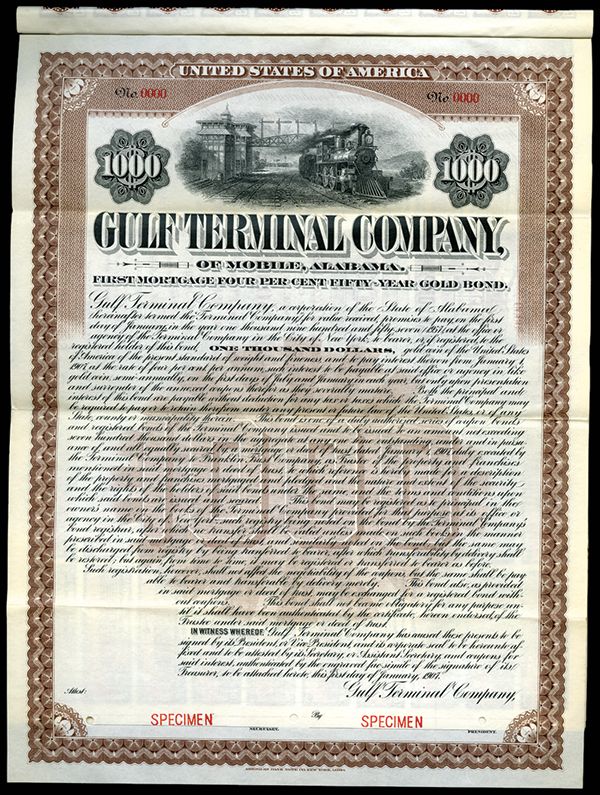 UNITED STATES OF AMERICA
No. 0000 No. 0000
1000 1000
GULF TERMINAL COMPANY,
OF MOBILE, ALABAMA,
FIRST MORTGAGE FOUR PER CENT FIFTY-YEAR GOLD BOND.
Gulf Terminal Company, a corporation of the State of Alabama
(hereinafter termed the Terminal Company), for value received, promises to pay on the first
day of January, in the year one thousand nine hundred and fifty-seven 1957, at the office or
agency of the Terminal Company in the City of New York, to bearer, or, if registered, to the
registered holder of this bond, ONE THOUSAND DOLLARS, gold coin of the United States
of America of the present standard of weight and fineness, and to pay interest thereon from January 1,
1907, at the rate of four per cent per annum, such interest to be payable at said office or agency in like
gold coin, semi-annually, on the first days of July and January in each year, but only upon presentation
and surrender of the annexed coupons therefor as they severally mature. Both the principal and
interest of this bond are payable without deduction for any tax or taxes which the Terminal Company may
be required to pay or to retain therefrom under any present or future law of the United States or of any
State, county or municipality therein. This bond is one of a duly authorized series of coupon bonds
and registered bonds of the Terminal Company issued and to be issued to an amount not exceeding
seven hundred thousand dollars in the aggregate at any one time outstanding, under and in pursu-
ance of, and all equally secured by, a mortgage or deed of trust dated January 1, 1907, duly executed by
the Terminal Company to Franklin Trust Company, as Trustee, of the property and franchises
mentioned in said mortgage or deed of trust, to which reference is hereby made for a description
of the property and franchises mortgaged and pledged, the nature and extent of the security,
and the rights of the holders of said bonds under the same, and the terms and conditions upon
which said bonds are issued and secured. This bond may be registered as to principal in the
owner's name on the books of the Terminal Company provided for that purpose at its office or
agency in the City of New York, such registry being noted on the bond by the Terminal Company's
bond registrar, after which no transfer shall be valid unless made on such books in the manner
prescribed in said mortgage or deed of trust, and similarly noted on the bond; but the same may
be discharged from registry by being transferred to bearer, after which transferability by delivery shall
be restored; but again, from time to time, it may be registered or transferred to bearer as before.
Such registration, however, shall not affect the negotiability of the coupons, but the same shall be pay-
able to bearer and transferable by delivery merely. This bond also, as provided
in said mortgage or deed of trust, may be exchanged for a registered bond with-
out coupons. This bond shall not become obligatory for any purpose un-
til it shall have been authenticated by the certificate, hereon endorsed, of the
Trustee under said mortgage or deed of trust.
IN WITNESS WHEREOF, Gulf Terminal Company has caused these presents to be
signed by its President, or Vice President, and its corporate seal to be hereunto af-
fixed and to be attested by its Secretary, or Assistant Secretary, and coupons for
said interest, authenticated by the engraved fac-simile of the signature of its
Treasurer, to be attached hereto, this first day of January, 1907.
Gulf Terminal Company,
Attest:
SPECIMEN By SPECIMEN
SECRETARY. PRESIDENT.
AMERICAN BANK NOTE CO. NEW YORK